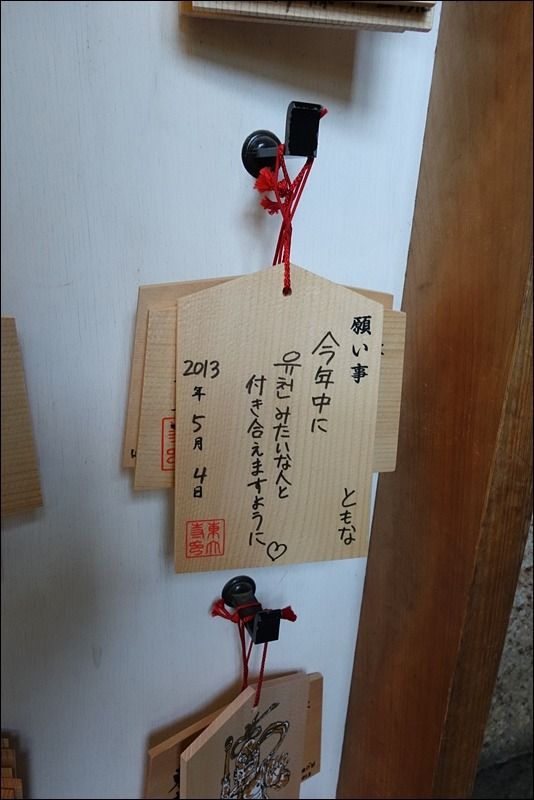 願い事
今年中に
유천みたいな人と
付き合えますように♡
ともな
2013年5月4日